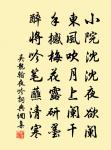 小院沈沈夜欲闌
東風吹月上闌干
手撼梅花露開研
醉將吟筆蘸清寒
吳龍翰夜吟詞典網